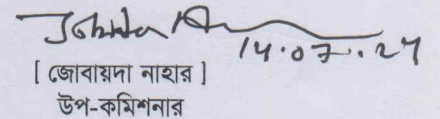 14.07.24
[ জোবায়দা নাহার ]
উপ-কমিশনার